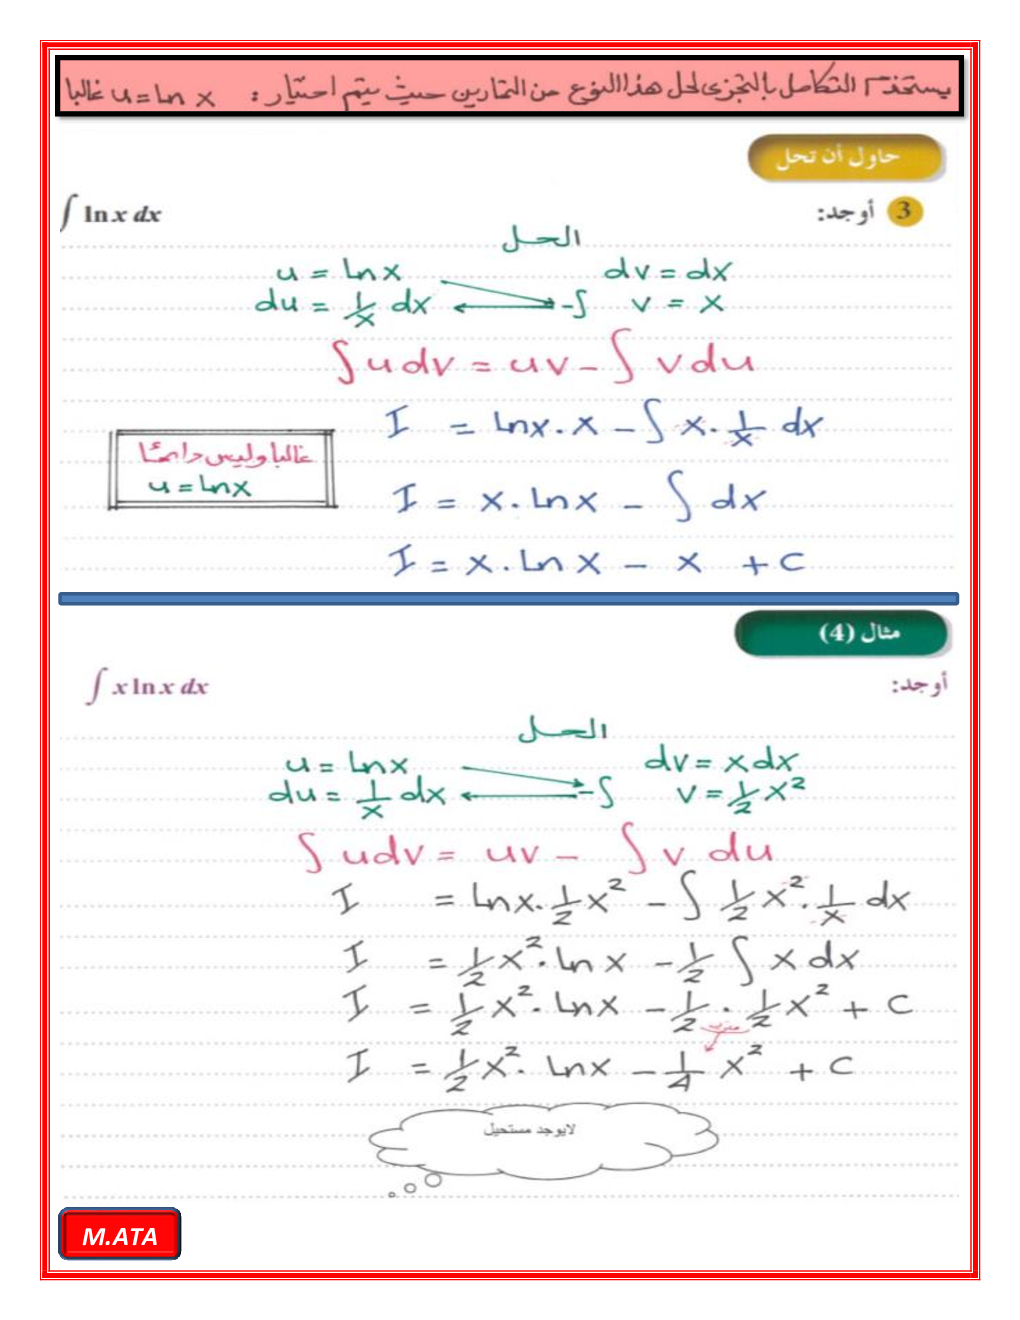 يستخدم التكامل بالتجزئ لحل هذا النوع من التمارين حيث يتم اختيار : u = ln x غالبا
حاول أن تحل
3 أوجد: ∫ ln x dx
الحل
u = ln x dv = dx
du = 1/x dx -∫ v = x
∫ u dv = uv - ∫ v du
I = ln x . x - ∫ x . 1/x dx
غالبا وليس دائمًا
u = ln x
I = x . ln x - ∫ dx
I = x . ln x - x + c
مثال (4)
أوجد: ∫ x ln x dx
الحل
u = ln x dv = x dx
du = 1/x dx -∫ v = 1/2 x²
∫ u dv = uv - ∫ v du
I = ln x . 1/2 x² - ∫ 1/2 x² . 1/x dx
I = 1/2 x² . ln x - 1/2 ∫ x dx
I = 1/2 x² . ln x - 1/2 . 1/2 x² + c
ضرب
I = 1/2 x² . ln x - 1/4 x² + c
لايوجد مستحيل
M.ATA